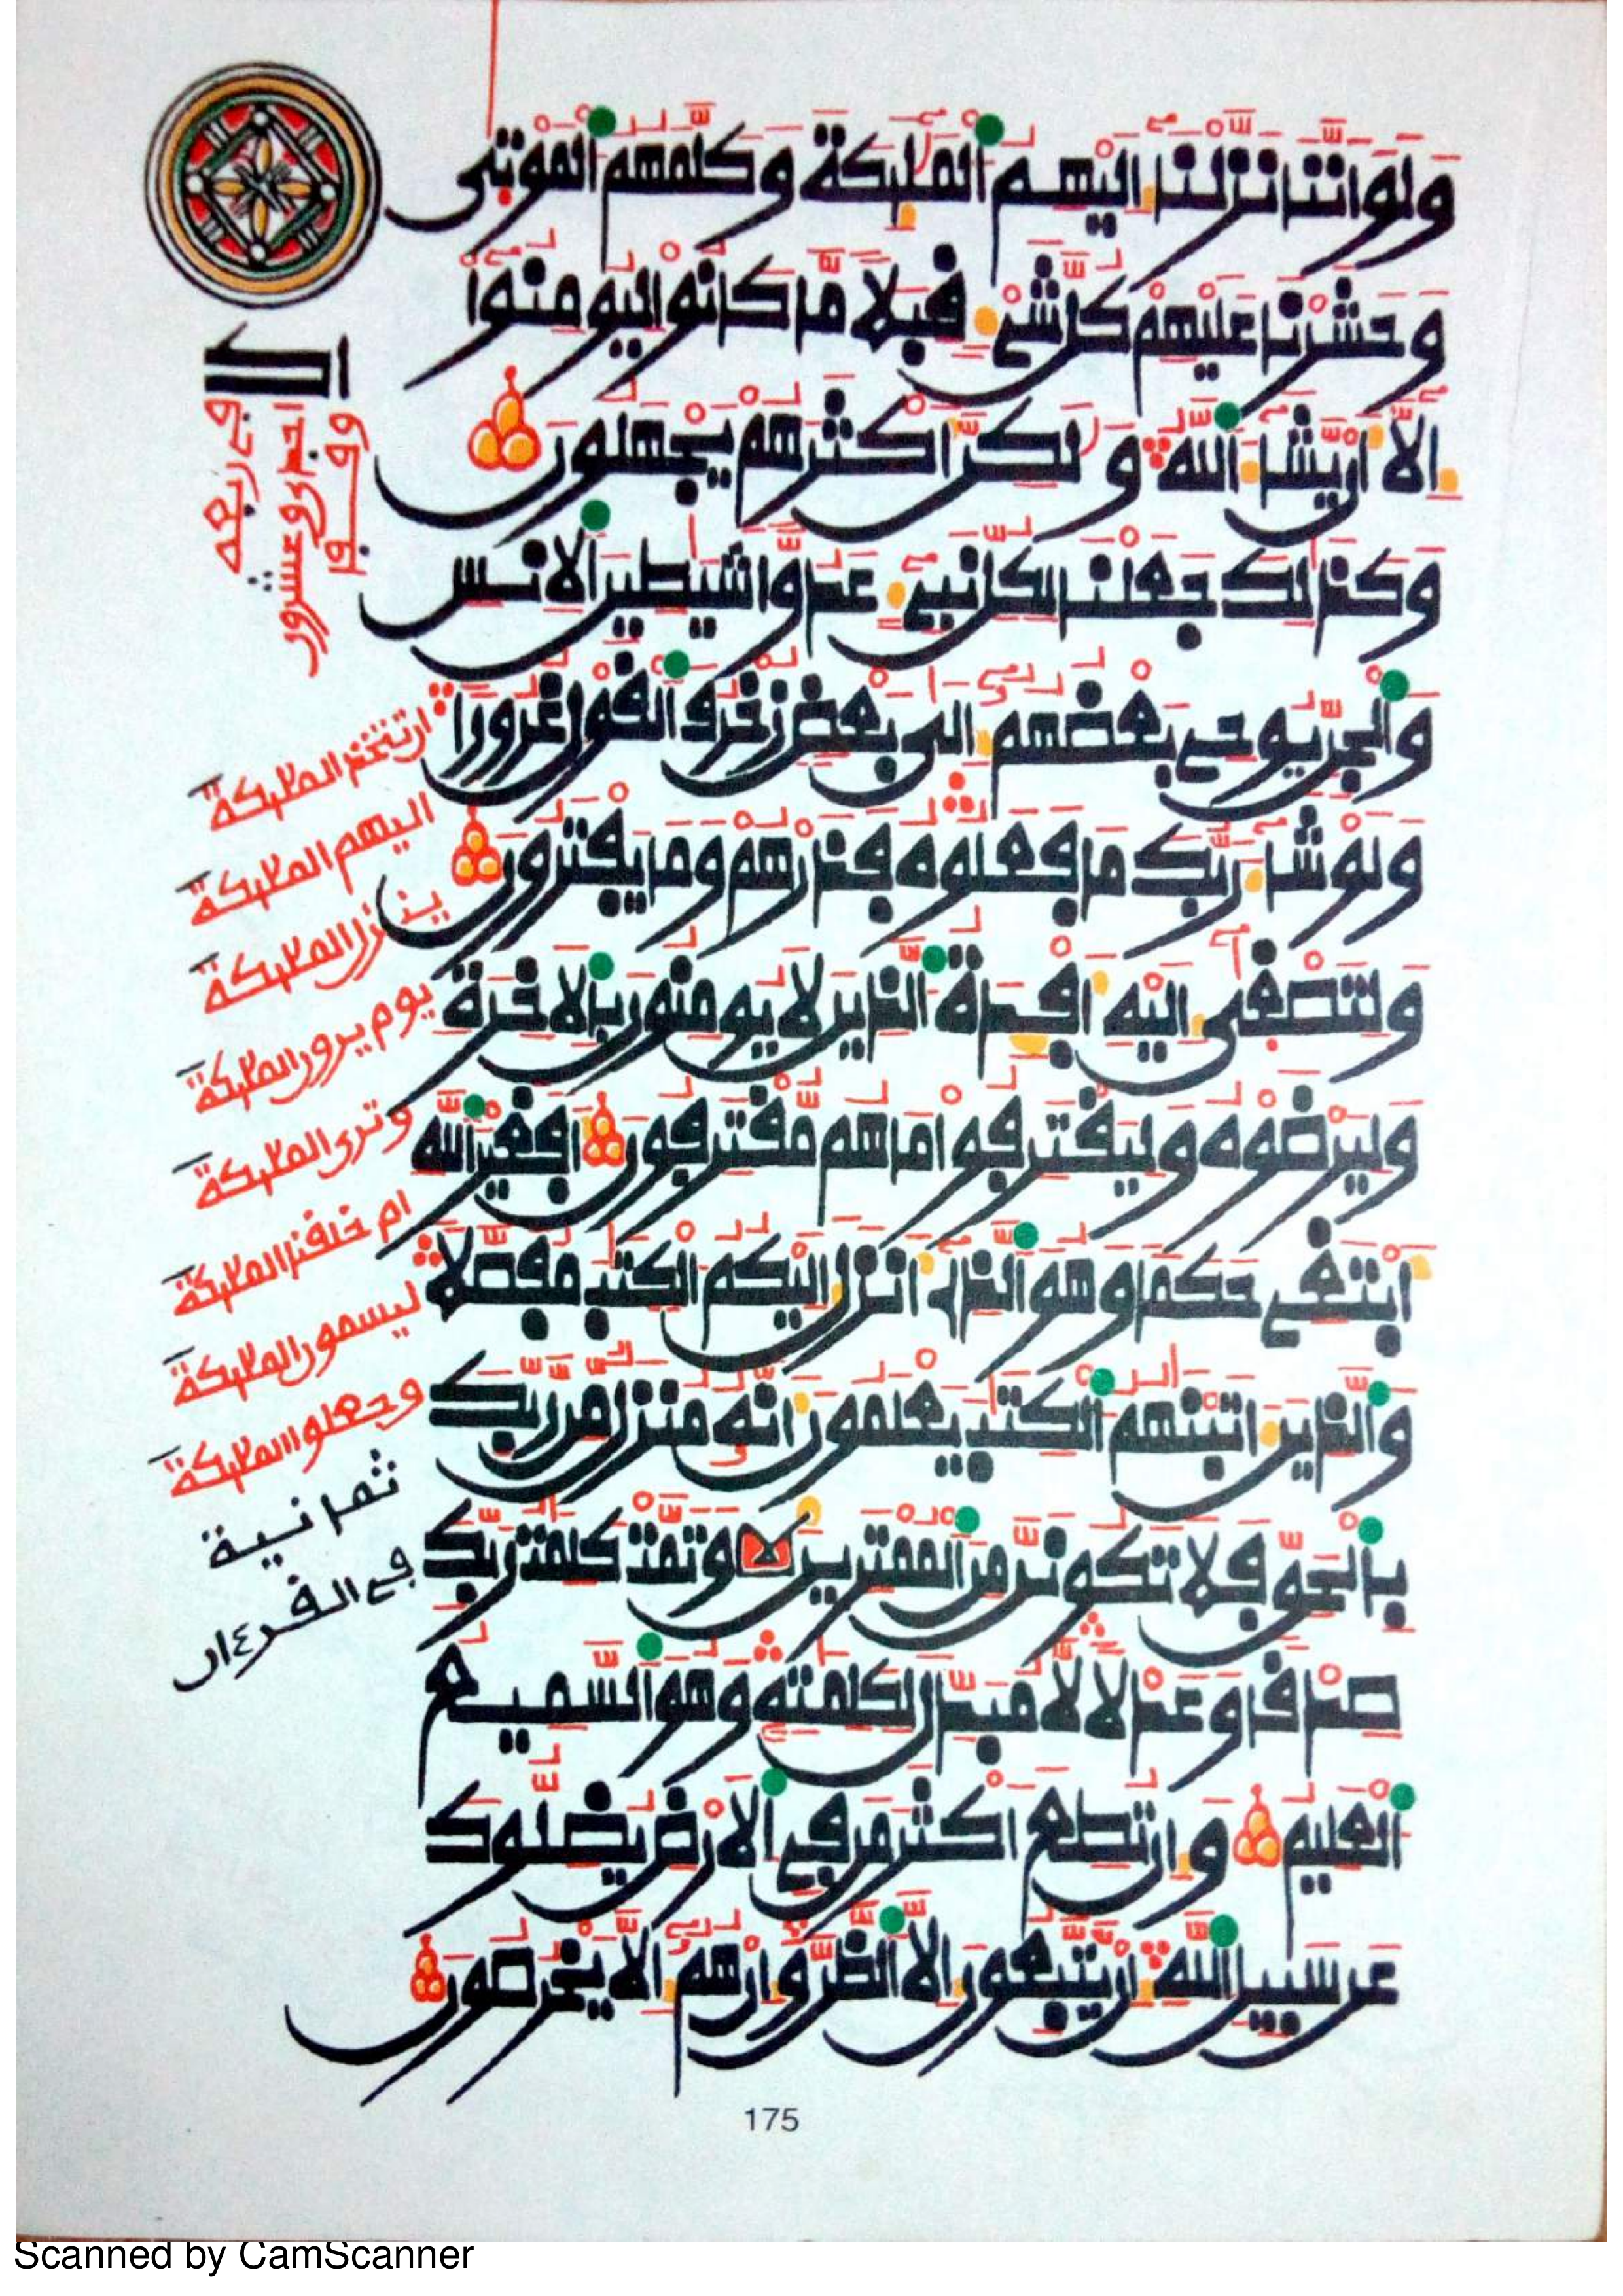 ولو اننا نزلنا اليهم الملئكة وكلمهم الموتى
وحشرنا عليهم كل شىء قبلا ما كانوا ليومنوا
الا ان يشاء الله ولكن اكثرهم يجهلون
وكذلك جعلنا لكل نبىء عدوا شيطين الانس
والجن يوحى بعضهم الى بعض زخرف القول غرورا
ولو شاء ربك ما فعلوه فذرهم وما يفترون
ولتصغى اليه افدة الذين لا يومنون بالاخرة
وليرضوه وليقترفوا ما هم مقترفون افغير الله
ابتغى حكما وهو الذى انزل اليكم الكتب مفصلا
والذين اتينهم الكتب يعلمون انه منزل من ربك
بالحق فلا تكونن من الممترين وتمت كلمت ربك
صدقا وعدلا لا مبدل لكلمته وهو السميع
العليم وان تطع اكثر من فى الارض يضلوك
عن سبيل الله ان يتبعون الا الظن وان هم الا يخرصون
ان تتخذ الملئكة
اليهم الملئكة
ينزل الملئكة
يوم يرون الملئكة
وترى الملئكة
ام خلقنا الملئكة
ليسمون الملئكة
وجعلوا الملئكة
ثمانية
فى القرءان
175
Scanned by CamScanner